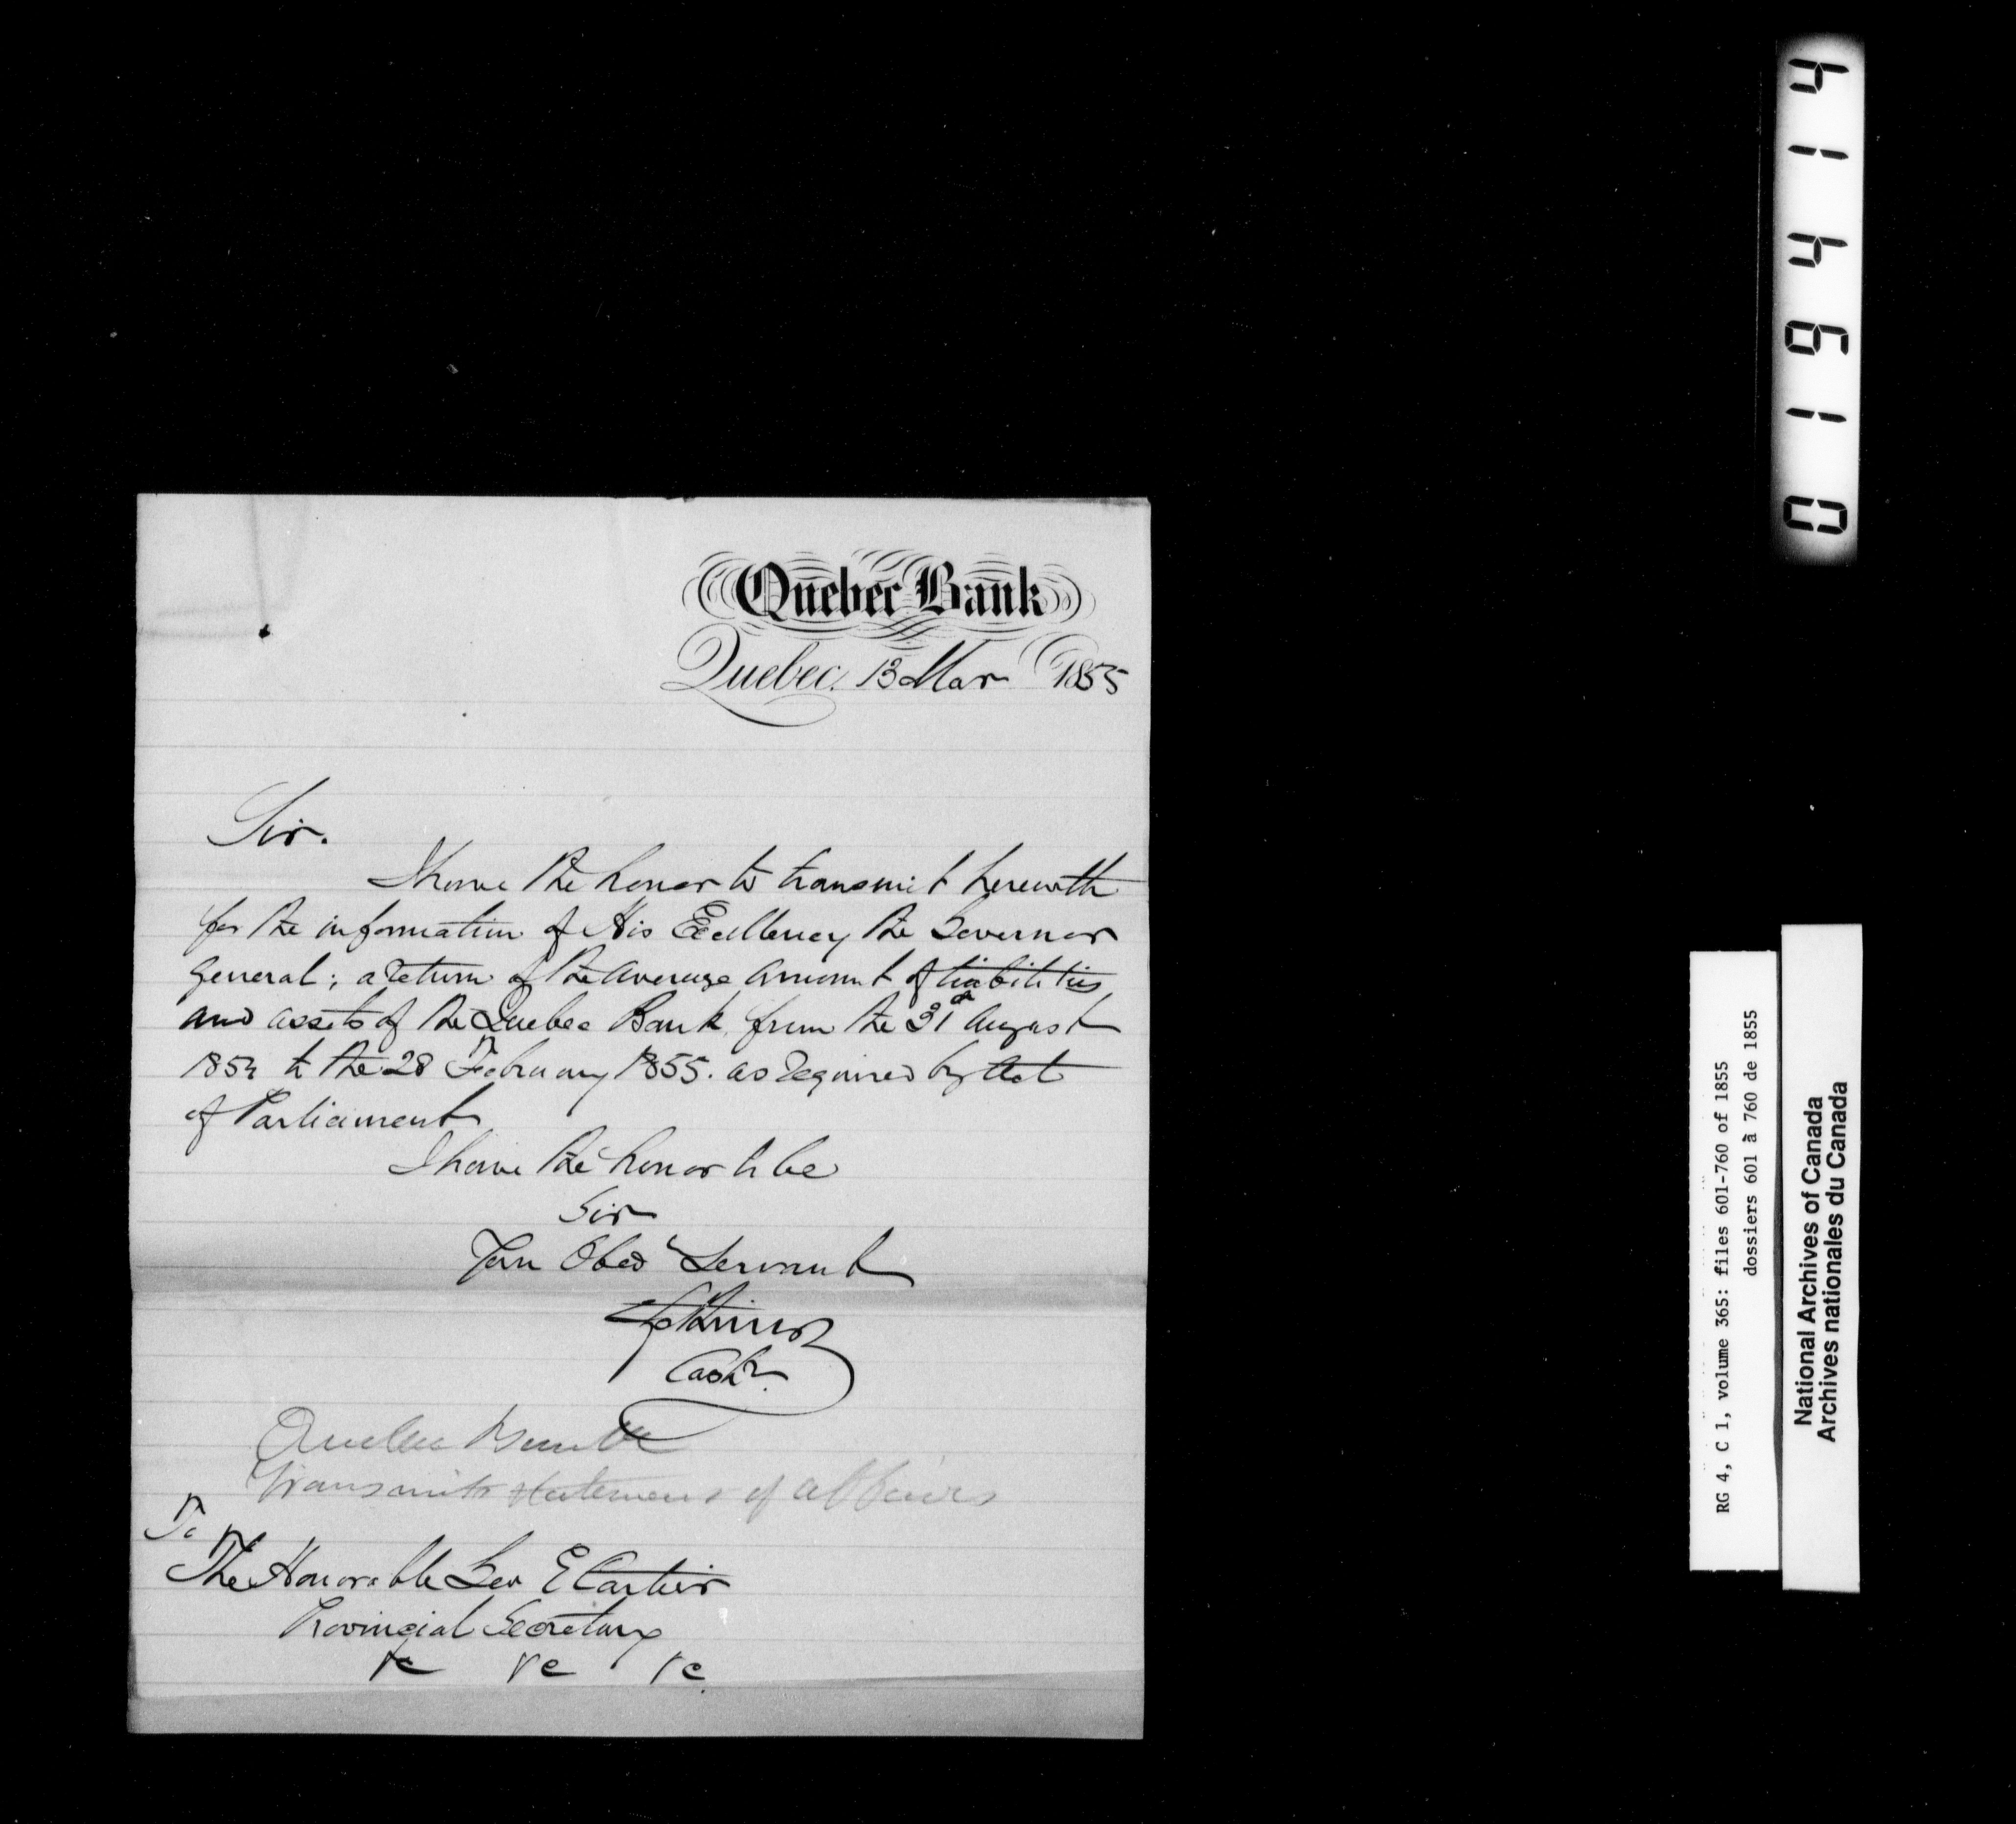 Quebec Bank
Quebec. 13 Mar 1855
Sir.
I have the honor to transmit herewith
for the information of His Excellency the Governor
General; a return of the average amount of liabilities
and assets of the Quebec Bank from the 31st August
1854 to the 28 February 1855. as required by Act
of Parliament
I have the honor to be
Sir
Your Obed Servant
Cashr.
Quebec Bank
Transmits statement of affairs
To
The Honorable Geo E Cartier
Provincial Secretary
&c &c &c
0 1 6 4 1 4
RG 4, C 1, volume 365: files 601-760 of 1855
dossiers 601 à 760 de 1855
National Archives of Canada
Archives nationales du Canada